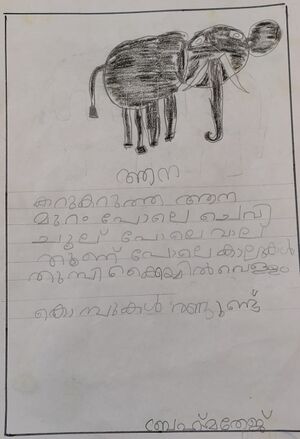 ആന
കറുകറുത്ത ആന
മുറം പോലെ ചെവി
ചൂല് പോലെ വാല്
തൂണ് പോലെ കാലുകൾ
തുമ്പി ക്കൈയിൽ വെള്ളം
കൊമ്പുകൾ രണ്ടുണ്ട്